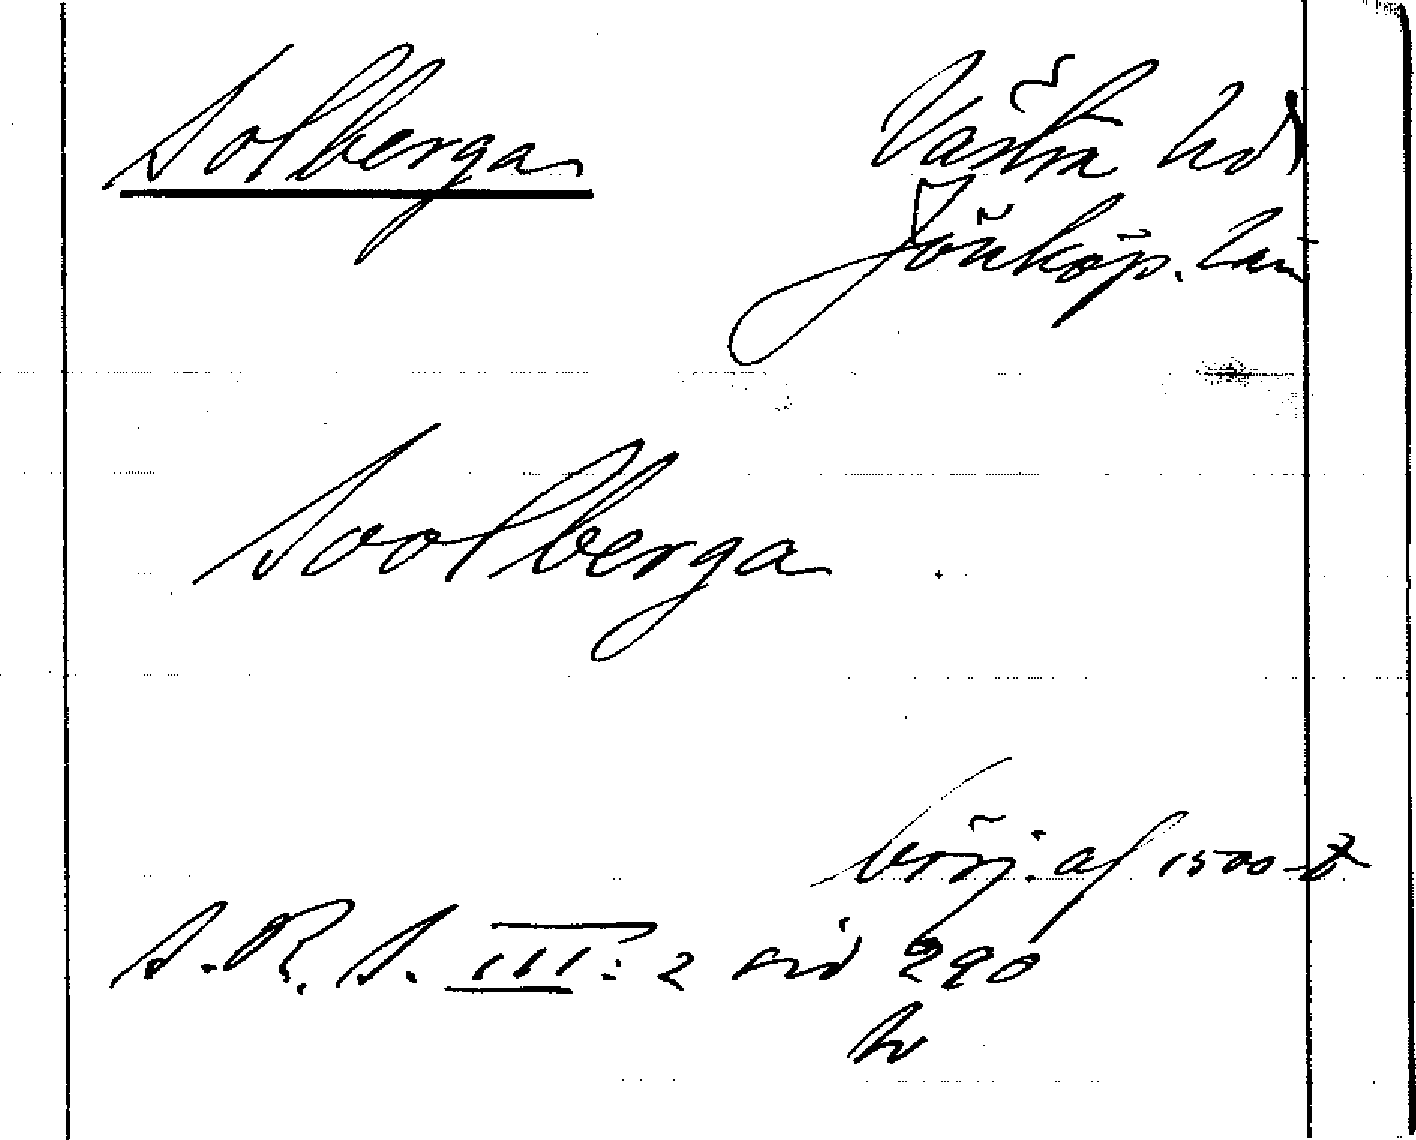 Solberga Västra hd
Jönköp. län
Soolberga
börj. af 1500-t
S.R.S. III:2 sid 290